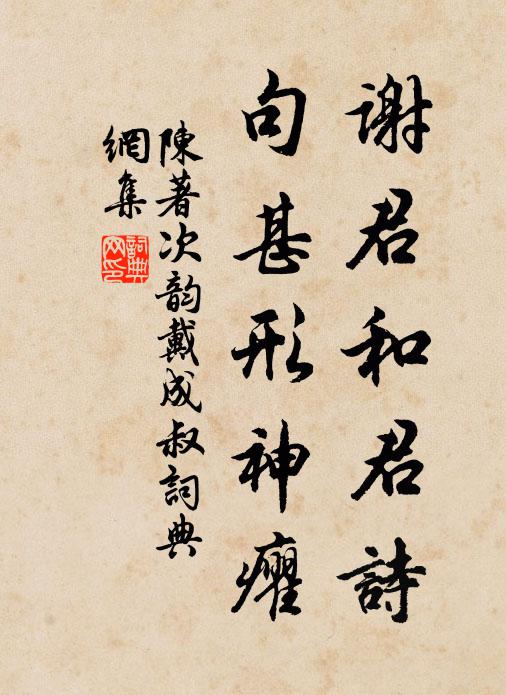 謝君和君詩
句甚形神癯
陳著次韵戴成叔詞典
網集
詞典
网印